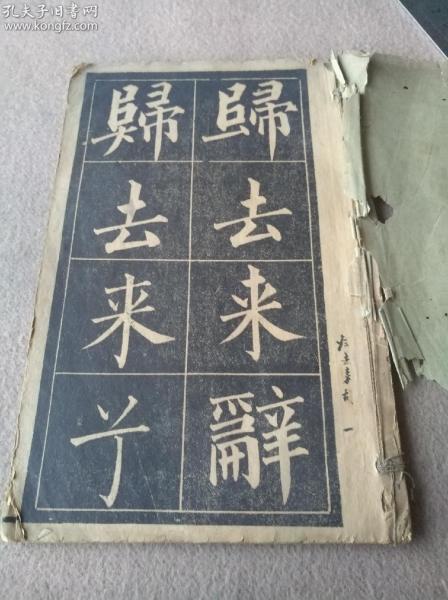 孔夫子旧书网
www.kongfz.com
歸去来辭
歸去来兮
一